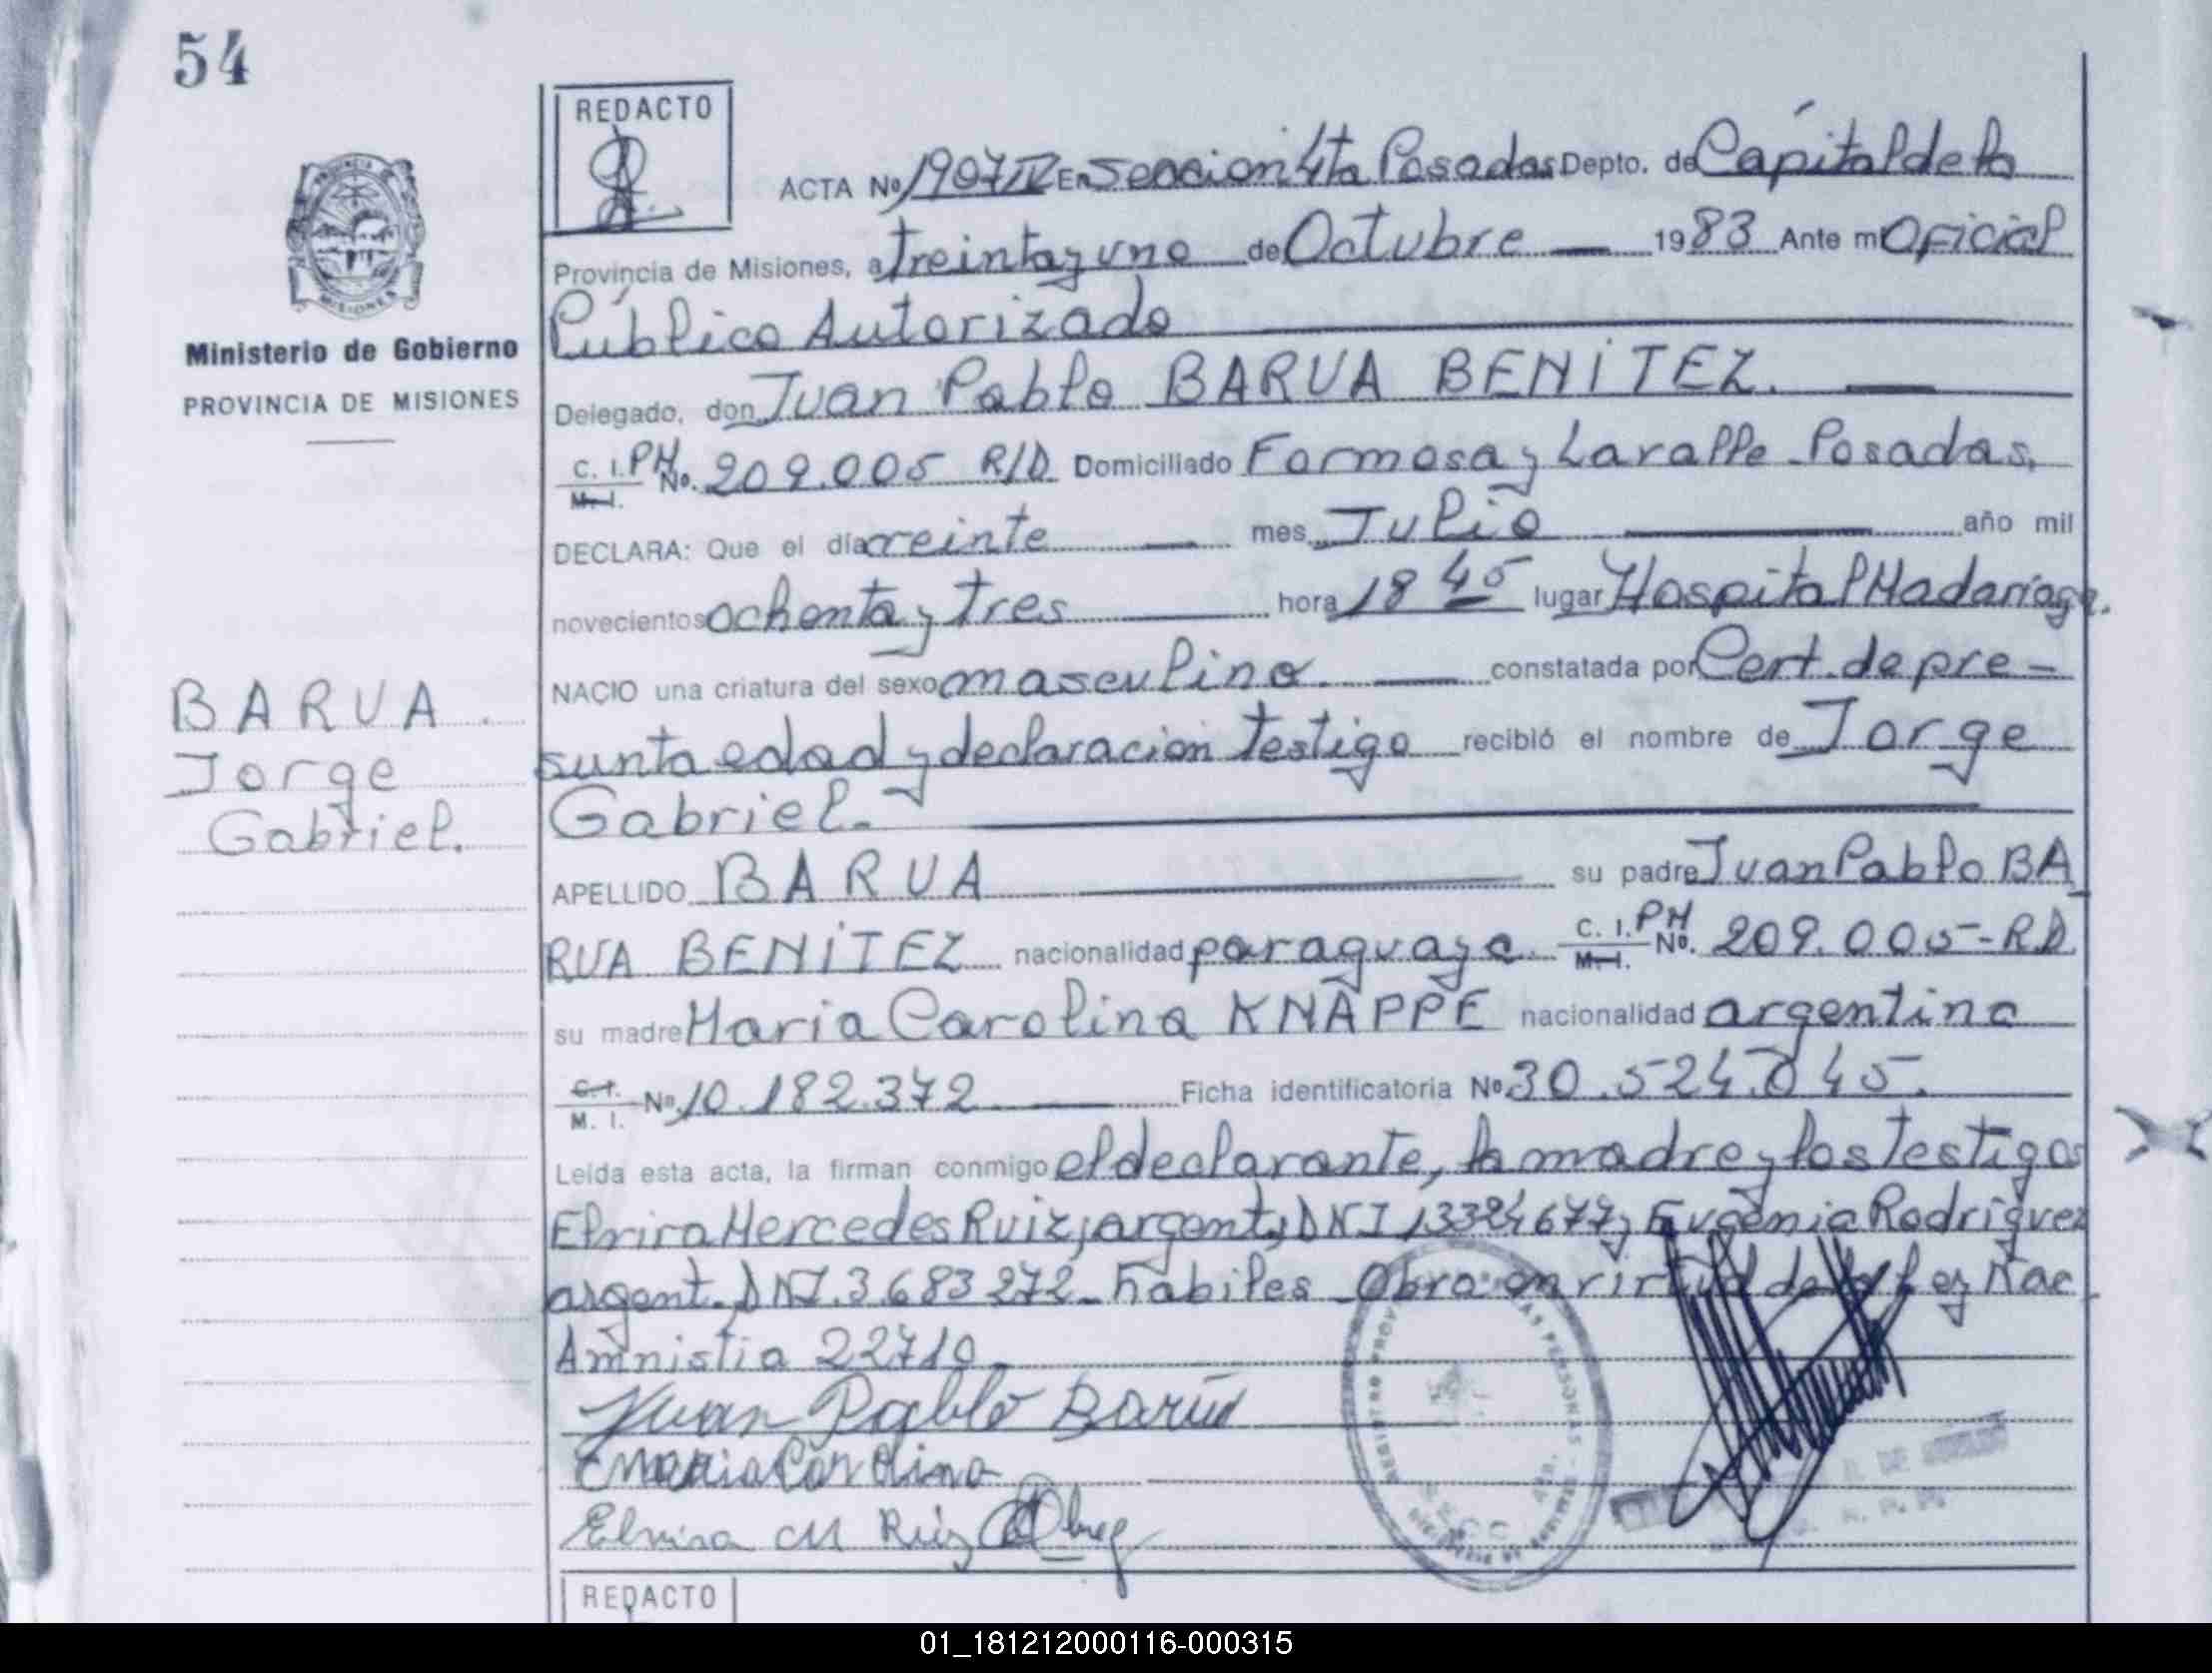 54
REDACTO
ACTA Nº 1907 IV En Seccion 4ta Posadas Depto. de Capital de la
Provincia de Misiones, a treinta y uno de Octubre — 1983 Ante mi Oficial
Público Autorizado
Ministerio de Gobierno
PROVINCIA DE MISIONES
Delegado, don Juan Pablo BARUA BENITEZ. —
C. I. PH Nº. 209.005 R/D Domiciliado Formosa y Lavalle - Posadas.
M. I.
DECLARA: Que el día veinte — mes Julio — año mil
novecientos ochenta y tres — hora 18 45 lugar Hospital Madariaga.
NACIO una criatura del sexo masculino. — constatada por Cert. de pre-
sunta edad y declaracion testigo recibió el nombre de Jorge
Gabriel.
BARUA
Jorge
Gabriel.
APELLIDO BARUA — su padre Juan Pablo BA
RUA BENITEZ nacionalidad paraguaya C. I. PH Nº. 209.005-RD
M. I.
su madre Maria Carolina KNAPPE nacionalidad argentina
C. I.
M. I. Nº 10.182.372 — Ficha identificatoria Nº 30.524.045.
Leída esta acta, la firman conmigo el declarante, la madre y los testigos
Elvira Mercedes Ruiz, argent, DNI 13324677 y Eugenia Rodriguez
argent. DNI. 3.683272 - habiles - Obra en virtud de la Ley Nac
Amnistia 22710
Juan Pablo Barúa
Maria Carolina
Elvira M Ruiz
REDACTO
01_181212000116-000315